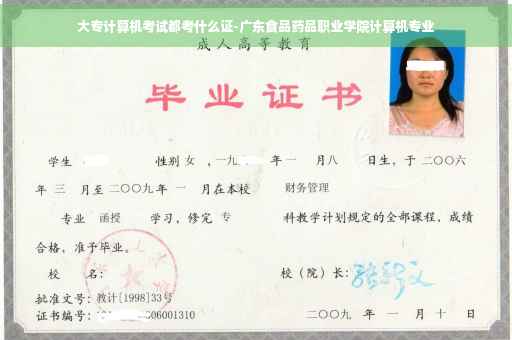 大专计算机考试都考什么证-广东食品药品职业学院计算机专业
成人高等教育
毕业证书
学生 性别 女 ，一九 年 一 月八 日生，于 二〇〇六
年 三 月至 二〇〇九 年 一 月在本校 财务管理
专业 函授 学习，修完 专 科教学计划规定的全部课程，成绩
合格，准予毕业。
校 名： 校（院）长：
批准文号：教计[1998]33号
证书编号： 06001310 二〇〇九 年 一 月 十 日